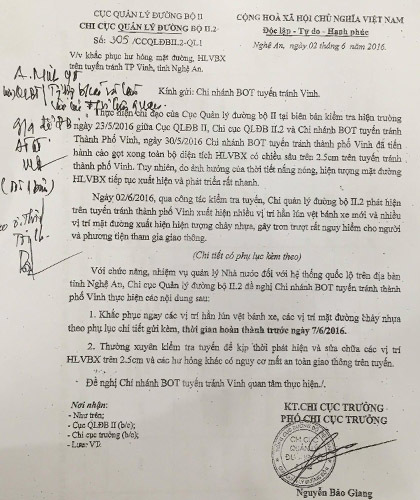 CỤC QUẢN LÝ ĐƯỜNG BỘ II
CHI CỤC QUẢN LÝ ĐƯỜNG BỘ II.2
Số: 305 /CCQLĐBII.2-QL1
V/v khắc phục hư hỏng mặt đường, HLVBX
trên tuyến tránh TP Vinh, tỉnh Nghệ An.
CỘNG HOÀ XÃ HỘI CHỦ NGHĨA VIỆT NAM
Độc lập - Tự do - Hạnh phúc
Nghệ An, ngày 02 tháng 6 năm 2016.
Kính gửi: Chi nhánh BOT tuyến tránh Vinh.
Thực hiện chỉ đạo của Cục Quản lý đường bộ II tại biên bản kiểm tra hiện trường
ngày 23/5/2016 giữa Cục QLĐB II, Chi cục QLĐB II.2 và Chi nhánh BOT tuyến tránh
Thành Phố Vinh, ngày 30/5/2016 Chi nhánh BOT tuyến tránh thành phố Vinh đã tiến
hành cào gọt xong toàn bộ diện tích HLVBX có chiều sâu trên 2.5cm trên tuyến tránh
Thành phố Vinh. Tuy nhiên, do ảnh hưởng của thời tiết nắng nóng, hiện tượng mặt đường
HLVBX tiếp tục xuất hiện và phát triển rất nhanh.
Ngày 02/6/2016, qua công tác kiểm tra tuyến, Chi cục Quản lý đường bộ II.2 phát hiện
trên tuyến tránh thành phố Vinh xuất hiện nhiều vị trí hằn lún vệt bánh xe mới và nhiều
vị trí mặt đường xuất hiện hiện tượng chảy nhựa, gây trơn trượt rất nguy hiểm cho người
và phương tiện tham gia giao thông.
(Chi tiết có phụ lục kèm theo)
Với chức năng, nhiệm vụ quản lý Nhà nước đối với hệ thống quốc lộ trên địa bàn
tỉnh Nghệ An, Chi cục Quản lý đường bộ II.2 đề nghị Chi nhánh BOT tuyến tránh thành
phố Vinh thực hiện các nội dung sau:
1. Khắc phục ngay các vị trí hằn lún vệt bánh xe, các vị trí mặt đường chảy nhựa
theo phụ lục chi tiết gửi kèm, thời gian hoàn thành trước ngày 7/6/2016.
2. Thường xuyên kiểm tra tuyến để kịp thời phát hiện và sửa chữa các vị trí
HLVBX trên 2.5cm và các hư hỏng khác có nguy cơ mất an toàn giao thông trên tuyến.
Đề nghị Chi nhánh BOT tuyến tránh Vinh quan tâm thực hiện./.
Nơi nhận:
- Như trên;
- Cục QLĐB II (b/c);
- Chi cục trưởng (b/c);
- Lưu: VT.
KT.CHI CỤC TRƯỞNG
PHÓ CHI CỤC TRƯỞNG
CHI CỤC
QUẢN LÝ
Nguyễn Bảo Giang